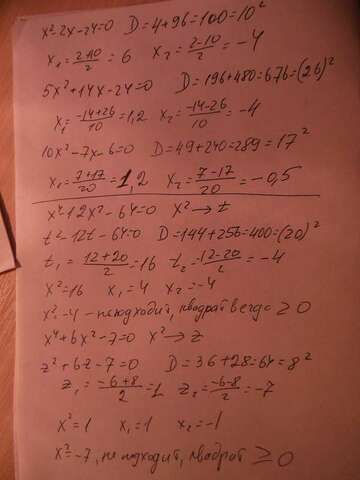 x²-2x-24=0 D=4+96=100=10²
x₁=(2+10)/2=6 x₂=(2-10)/2=-4
5x²+14x-24=0 D=196+480=676=(26)²
x₁=(-14+26)/10=1,2 x₂=(-14-26)/10=-4
10x²-7x-6=0 D=49+240=289=17²
x₁=(7+17)/20=1,2 x₂=(7-17)/20=-0,5
x⁴-12x²-64=0 x²→t
t²-12t-64=0 D=144+256=400=(20)²
t₁=(12+20)/2=16 t₂=(12-20)/2=-4
x²=16 x₁=4 x₂=-4
x²=-4 - не подходит, квадрат всегда ≥0
x⁴+6x²-7=0 x²→z
z²+6z-7=0 D=36+28=64=8²
z₁=(-6+8)/2=1 z₂=(-6-8)/2=-7
x²=1 x₁=1 x₂=-1
x²=-7, не подходит, квадрат ≥0